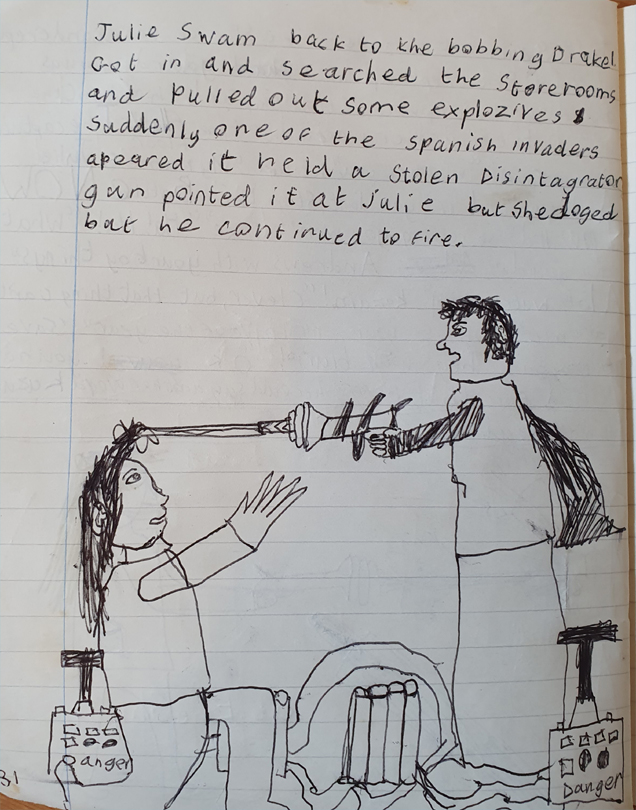 Julie Swam back to the bobbing Drakel
Got in and searched the Storerooms
and pulled out some explozives
Suddenly one of the spanish invaders
apeared it held a Stolen Disintagrator
gun pointed it at Julie but She doged
but he continued to fire.
Danger
Danger
31